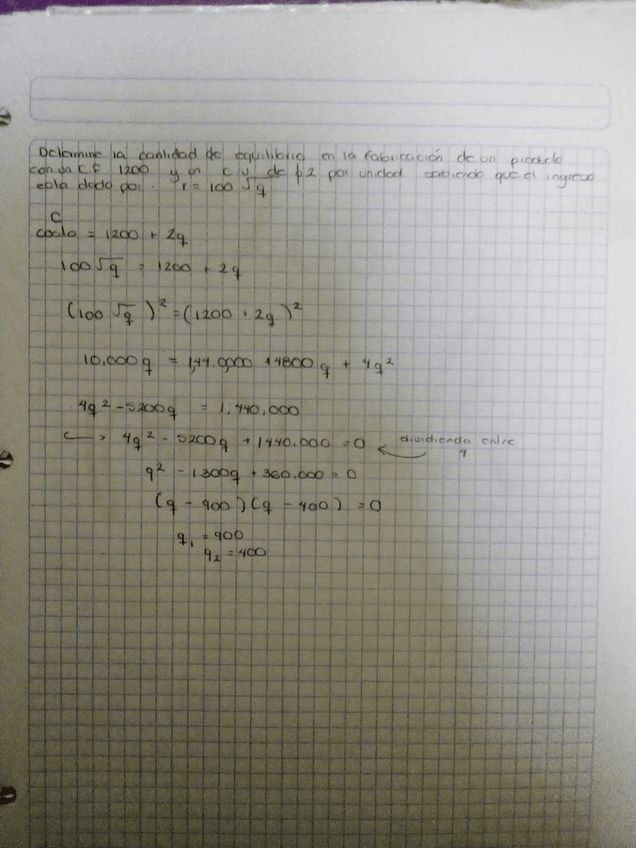 Determine la cantidad de equilibrio en la fabricación de un producto
con un C.F 1200 y un C v de $2 por unidad sabiendo que el ingreso
esta dado por. r = 100 √q
C
costo = 1200 + 2q
100√q = 1200 + 2q
(100 √q )² = (1200 + 2q )²
10.000q = 1,44.0,000 + 4800 q + 4q²
4q² - 5200q = 1.440,000
↪ 4q² - 5200q + 1440.000 = 0 ← dividiendo entre
4
q² - 1300q + 360.000 = 0
(q - 900 ) (q - 400 ) = 0
q₁ = 900
q₂ = 400